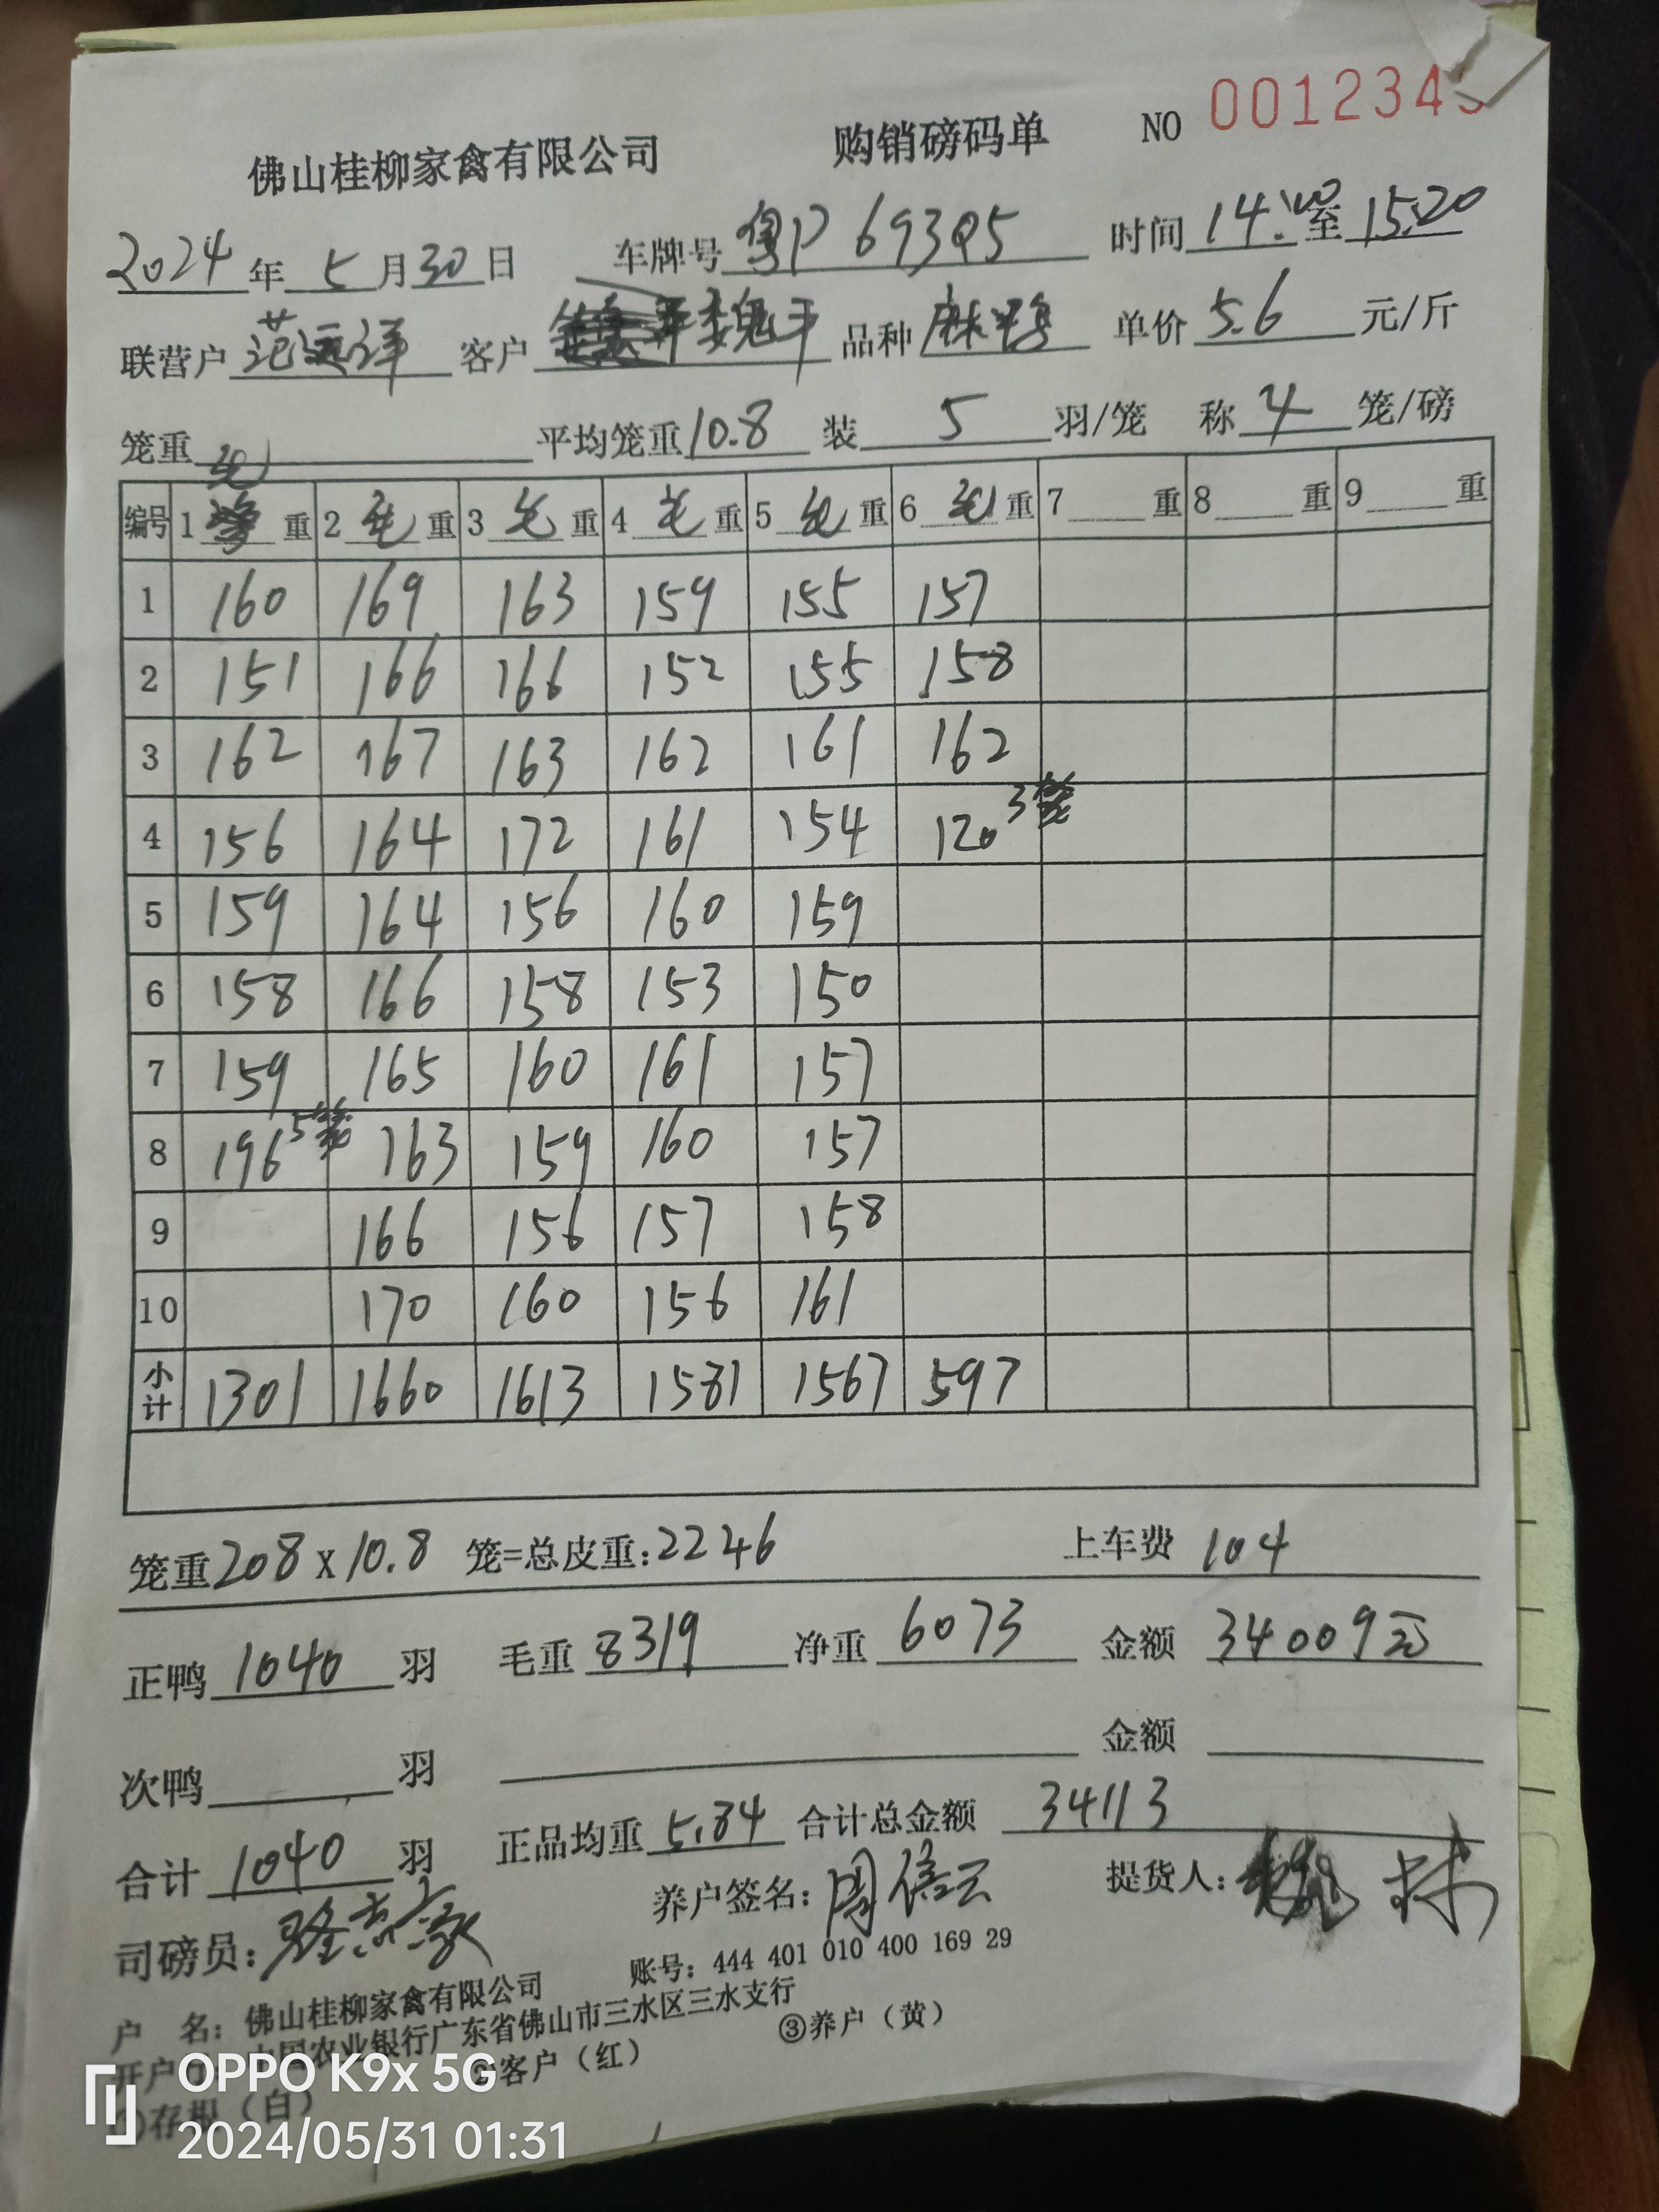 佛山桂柳家禽有限公司 购销磅码单 NO 001234
2024年5月30日 车牌号 粤P 693Q5 时间 14:00至15:20
联营户 范运洋 客户 魏平 品种 麻鸭 单价 5.6 元/斤
笼重 平均笼重 10.8 装 5 羽/笼 称 4 笼/磅
编号 1 毛 重 2 毛 重 3 毛 重 4 毛 重 5 毛 重 6 毛 重 7 重 8 重 9 重
1 160 169 163 159 155 157
2 151 166 166 152 155 158
3 162 167 163 162 161 162
4 156 164 172 161 154 120 3笼
5 159 164 156 160 159
6 158 166 158 153 150
7 159 165 160 161 157
8 196 5笼 163 159 160 157
9 166 156 157 158
10 170 160 156 161
小计 1301 1660 1613 1581 1567 597
笼重 208 x 10.8 笼=总皮重: 2246 上车费 104
正鸭 1040 羽 毛重 8319 净重 6073 金额 34009元
次鸭 羽 金额
合计 1040 羽 正品均重 5.84 合计总金额 34113
司磅员: 养户签名: 周信云 提货人:
账号: 444 401 010 400 169 29
户 名: 佛山桂柳家禽有限公司
开户 中国农业银行广东省佛山市三水区三水支行
存根(白) 客户(红) ③养户(黄)
OPPO K9x 5G
2024/05/31 01:31